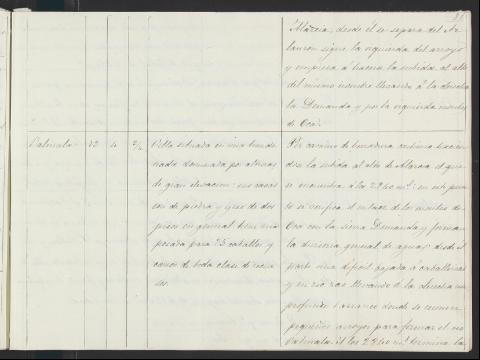 Alarcia, desde él se separa del Ar-
lanzon sigue la izquierda del arroyo
y empieza á hacerse la subida al alto
del mismo nombre llevando á la derecha
la Demanda y por la izquierda montes
de Oca.
Valmala 32 4 2/4 Villa situada en una hondo-
nada dominada por alturas
de gran elevacion: sus casas
son de piedra y yeso de dos
pisos en general tiene una
posada para 25 caballos y
carece de toda clase de recur-
sos.
Por camino de herradura continua hacien-
dose la subida al alto de Alarcia el que
se encuentra á los 2240 ms: en este punto
se verifica el enlace de los montes de
Oca con la sierra Demanda y forman
la divisoria general de aguas desde el
parte una difícil bajada á caballerias
y en llevando á la derecha un
profundo barranco donde se reunen
pequeños arroyos para formar el rio
Valmala. A los 2240 ms. termina la